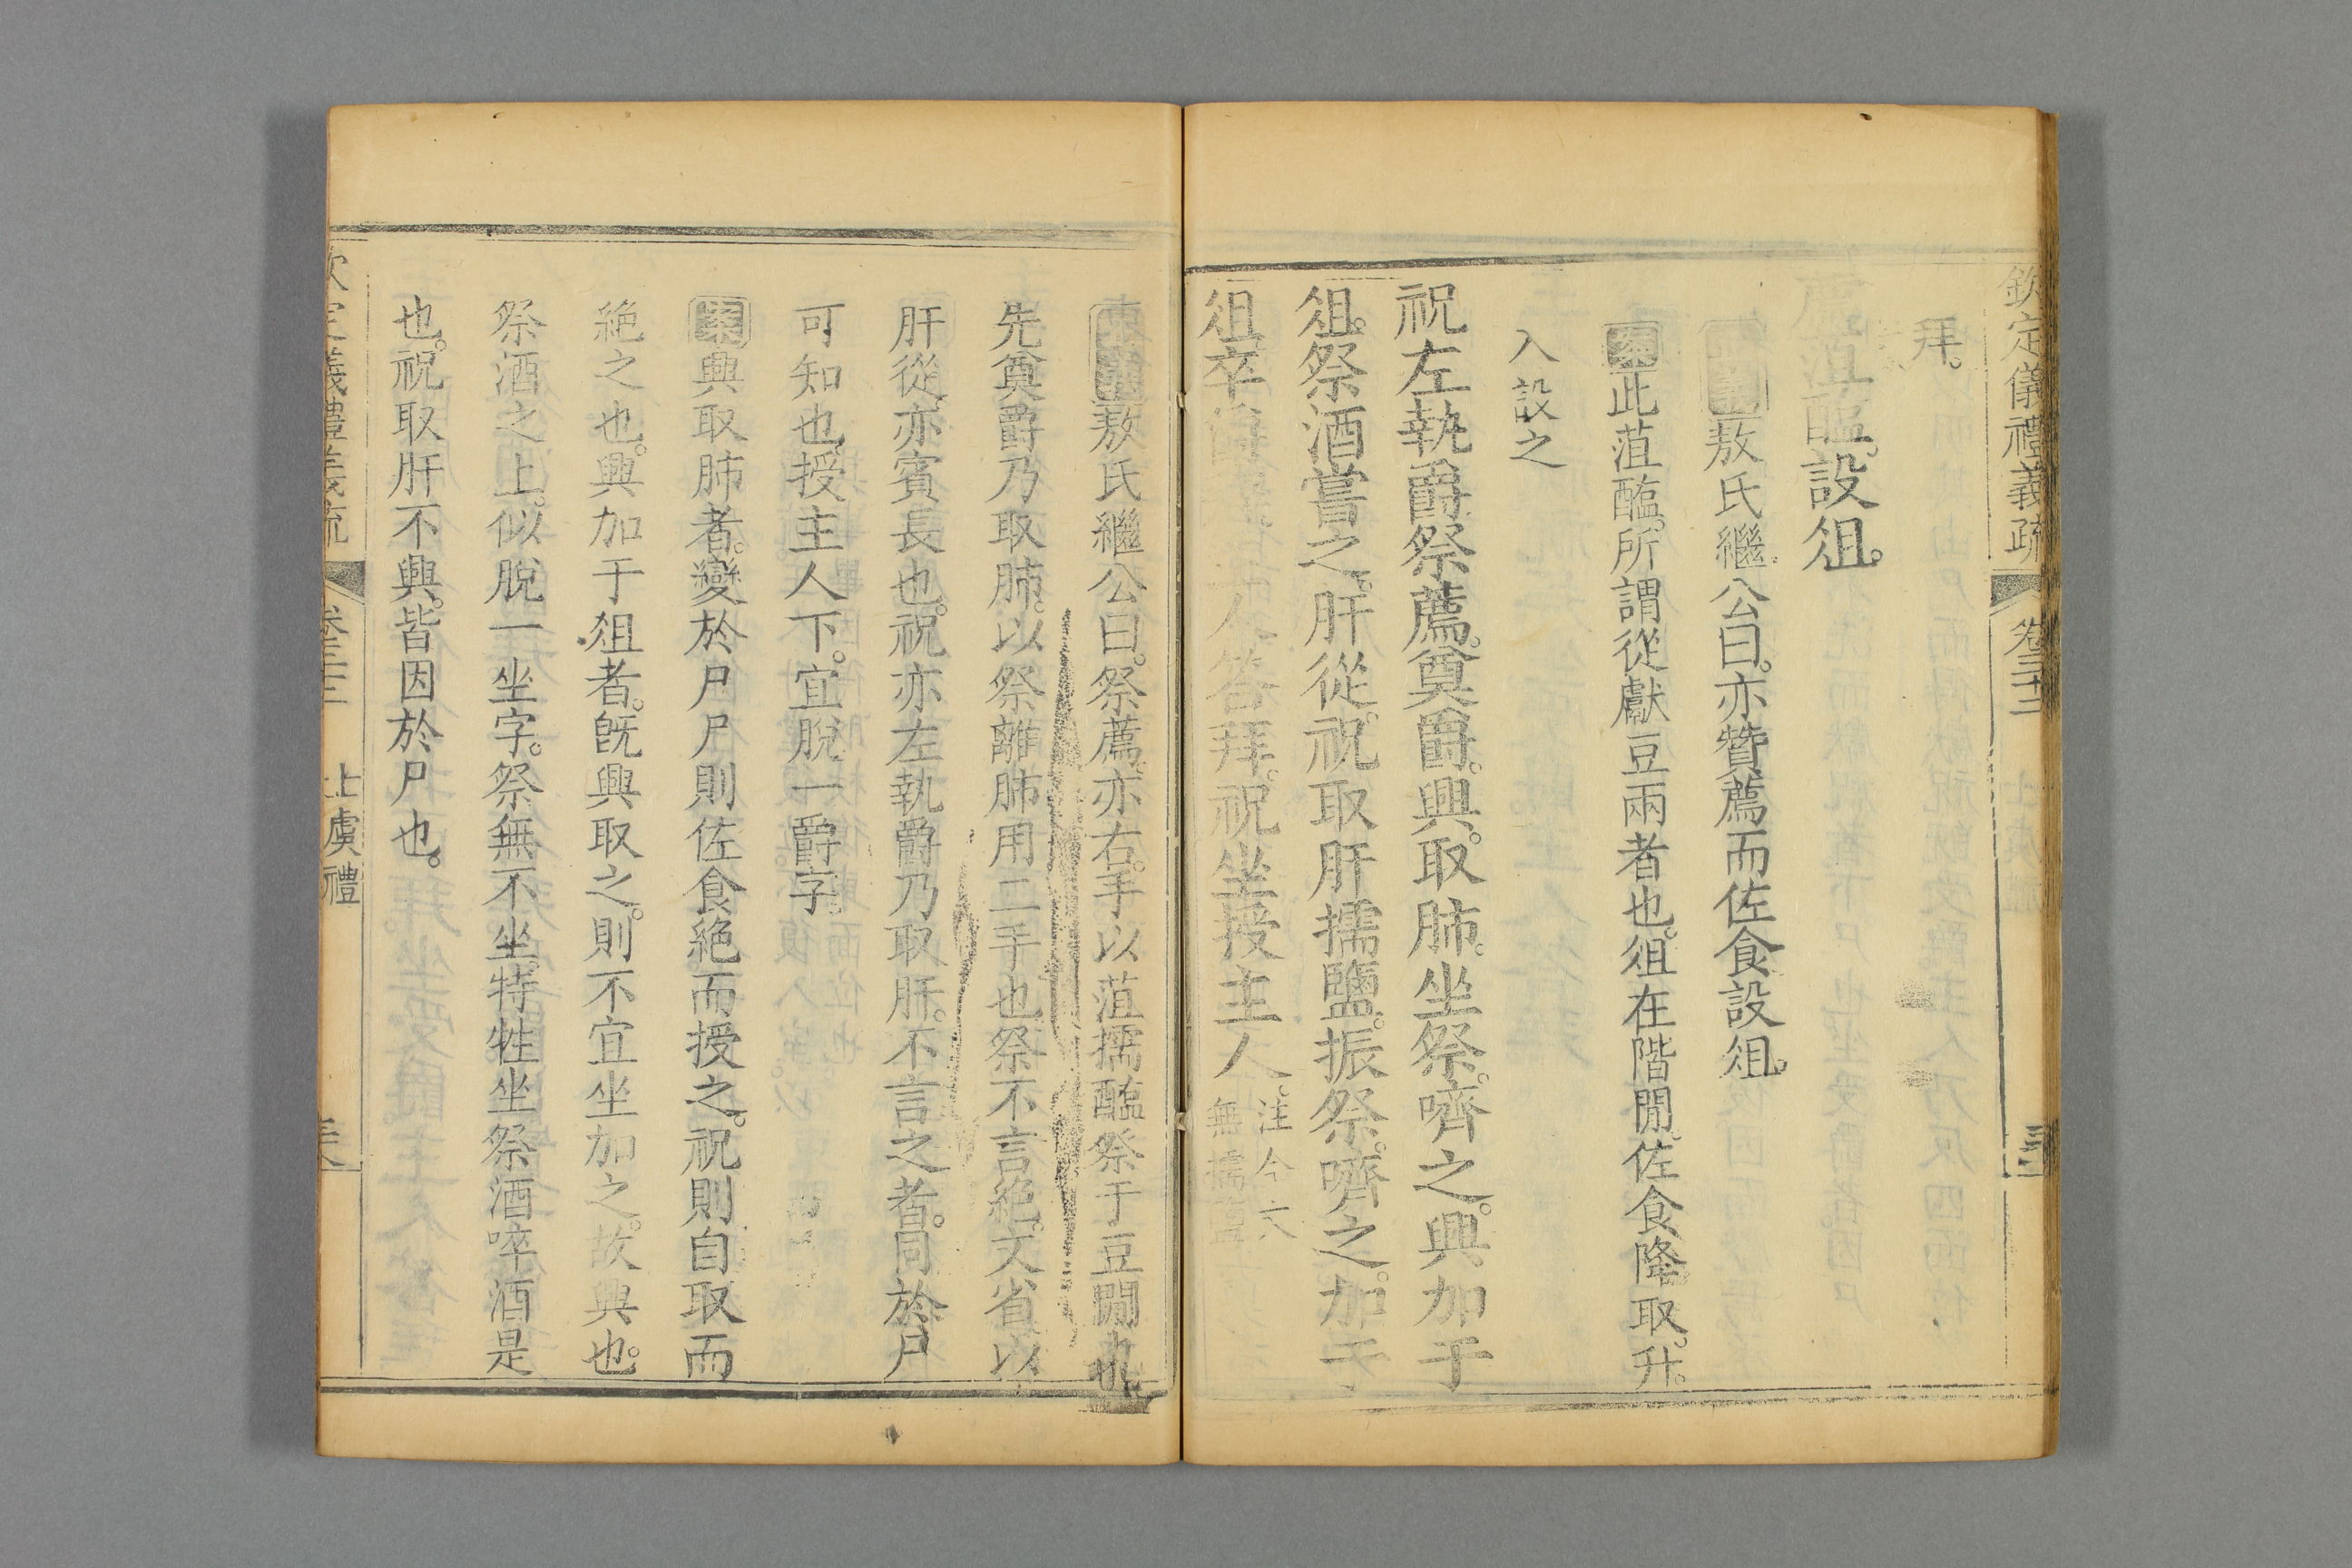 欽定儀禮義疏 卷三十三
拜。
菹醢。設俎。
敖氏繼公曰。亦贊薦而佐食設俎。
案此菹醢。所謂從獻豆兩者也。俎在階閒。佐食降。取。升。
入設之
祝左執爵祭薦。奠爵。興。取肺。坐祭。嚌之。興。加于
俎。祭酒嘗之。肝從。祝取肝擩鹽。振祭。嚌之。加于
俎。卒爵。人答拜。祝坐授主人。注今文無擩鹽
敖氏繼公曰。祭薦。亦右。手以菹擩醢祭于豆閒也。
先奠爵乃取肺。以祭離肺用二手也祭不言絶。文省以
肝從。亦賓長也。祝亦左執爵乃取肝。不言之者。同於尸
可知也。授主人下。宜脫一爵字。
案興取肺者。變於尸尸則佐食絶而授之。祝則自取而
絶之也。興加于俎者。旣興取之。則不宜坐加之。故興也。
祭酒之上。似脫一坐字。祭無不坐。特牲坐祭酒啐酒是
也。祝取肝不興。皆因於尸也。
欽定儀禮義疏 卷三十三 士虞禮